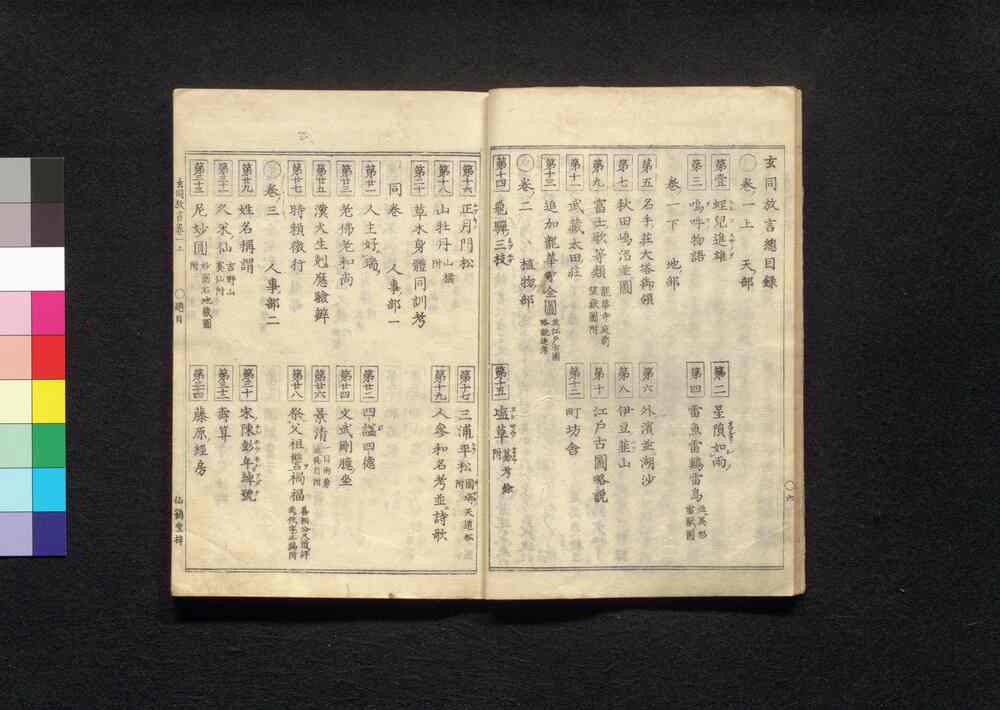 玄同放言總目録
卷一上　天部
第壹　蛭兒進雄
第二　星隕如雨
第三　嗚呼物語
第四　雷魚雷鷄雷鳥
卷一下　地部
第五　名手莊大塔御領
第六　外濱並湖沙
第七　秋田嶋沼並圖
第八　伊豆韮山
第九　富士歌等類　龍華寺庭前望嶽圖附
第十　江戸古圖略説
第十一　武藏太田莊
第十二　町坊舍
第十三　追加龍華寺全圖
卷二　植物部
第十四　飛驒三枝
第十五　塩草
第十六　正月門松
第十七　三浦平松
第十八　山牡丹
第十九　人參和名考並詩歌
第二十　草木身體同訓考
同卷　人事部一
第廿一　人主好瑞
第廿二　四謚四德
第廿三　老佛老和尚
第廿四　文武剛臆坐
第廿五　漢火生剋應驗辨
第廿六　景清
第廿七　時頼微行
第廿八　祭父祖讐禍福
卷三　人事部二
第廿九　姓名稱謂
第三十　宋陳彭年綽號
第三十一　久米仙　吉野山
第三十二　壽算
第三十三　尼妙圓　附
第三十四　藤原經房
玄同放言卷一上
○總目
仙鶴堂梓